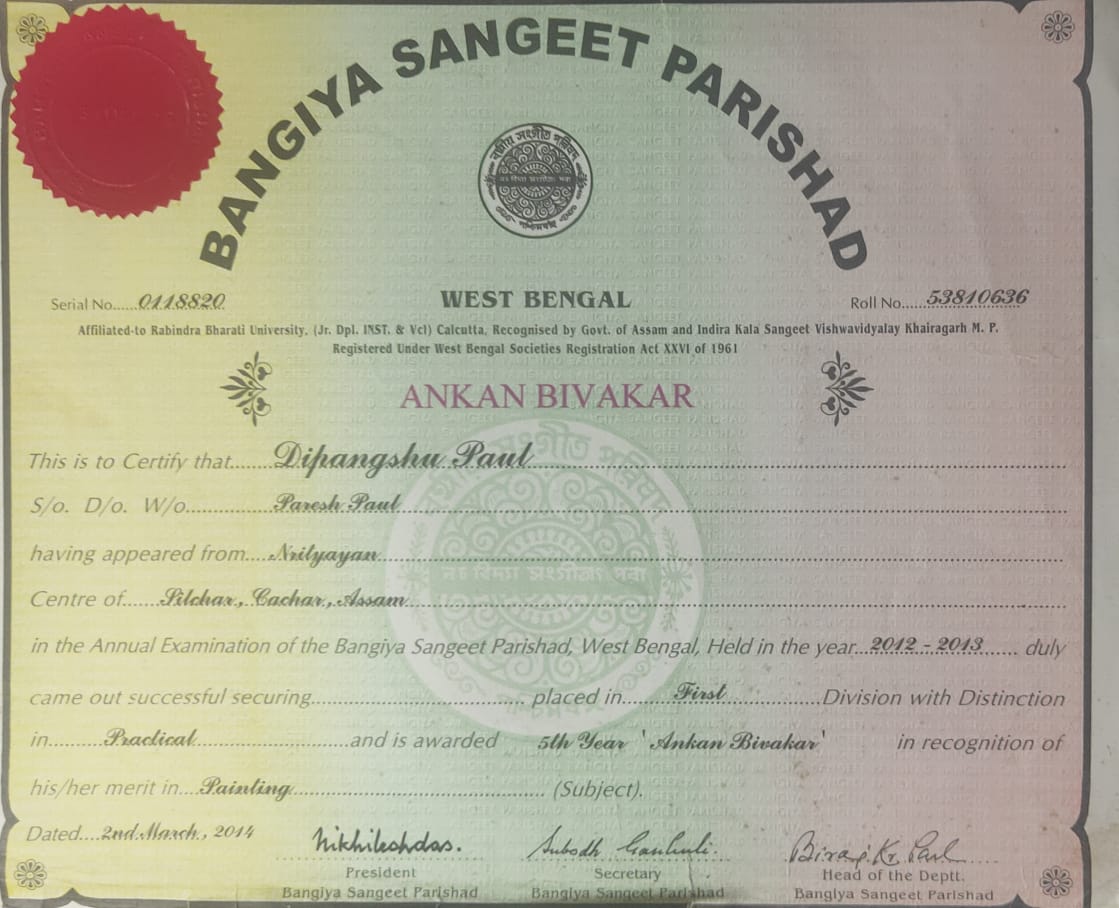 BANGIYA SANGEET PARISHAD
Serial No.....0118820
WEST BENGAL
Roll No....53810636
Affiliated-to Rabindra Bharati University. (Jr. Dpl. INST. & Vcl) Calcutta, Recognised by Govt. of Assam and Indira Kala Sangeet Vishwavidyalay Khairagarh M. P.
Registered Under West Bengal Societies Registration Act XXVI of 1961
ANKAN BIVAKAR
This is to Certify that......Dipangshu Paul
S/o. D/o. W/o...............Paresh Paul
having appeared from....Nrityayan
Centre of......Silchar, Cachar, Assam
in the Annual Examination of the Bangiya Sangeet Parishad, West Bengal, Held in the year..2012 - 2013...... duly
came out successful securing................................ placed in.........First...............Division with Distinction
in..........Practical..........................and is awarded 5th Year 'Ankan Bivakar' in recognition of
his/her merit in....Painting........................................... (Subject).
Dated....2nd March, 2014
Nikhileshdas.
President
Bangiya Sangeet Parishad
Subodh Ganguli.
Secretary
Bangiya Sangeet Parishad
Biraj Kr. Paul
Head of the Deptt.
Bangiya Sangeet Parishad